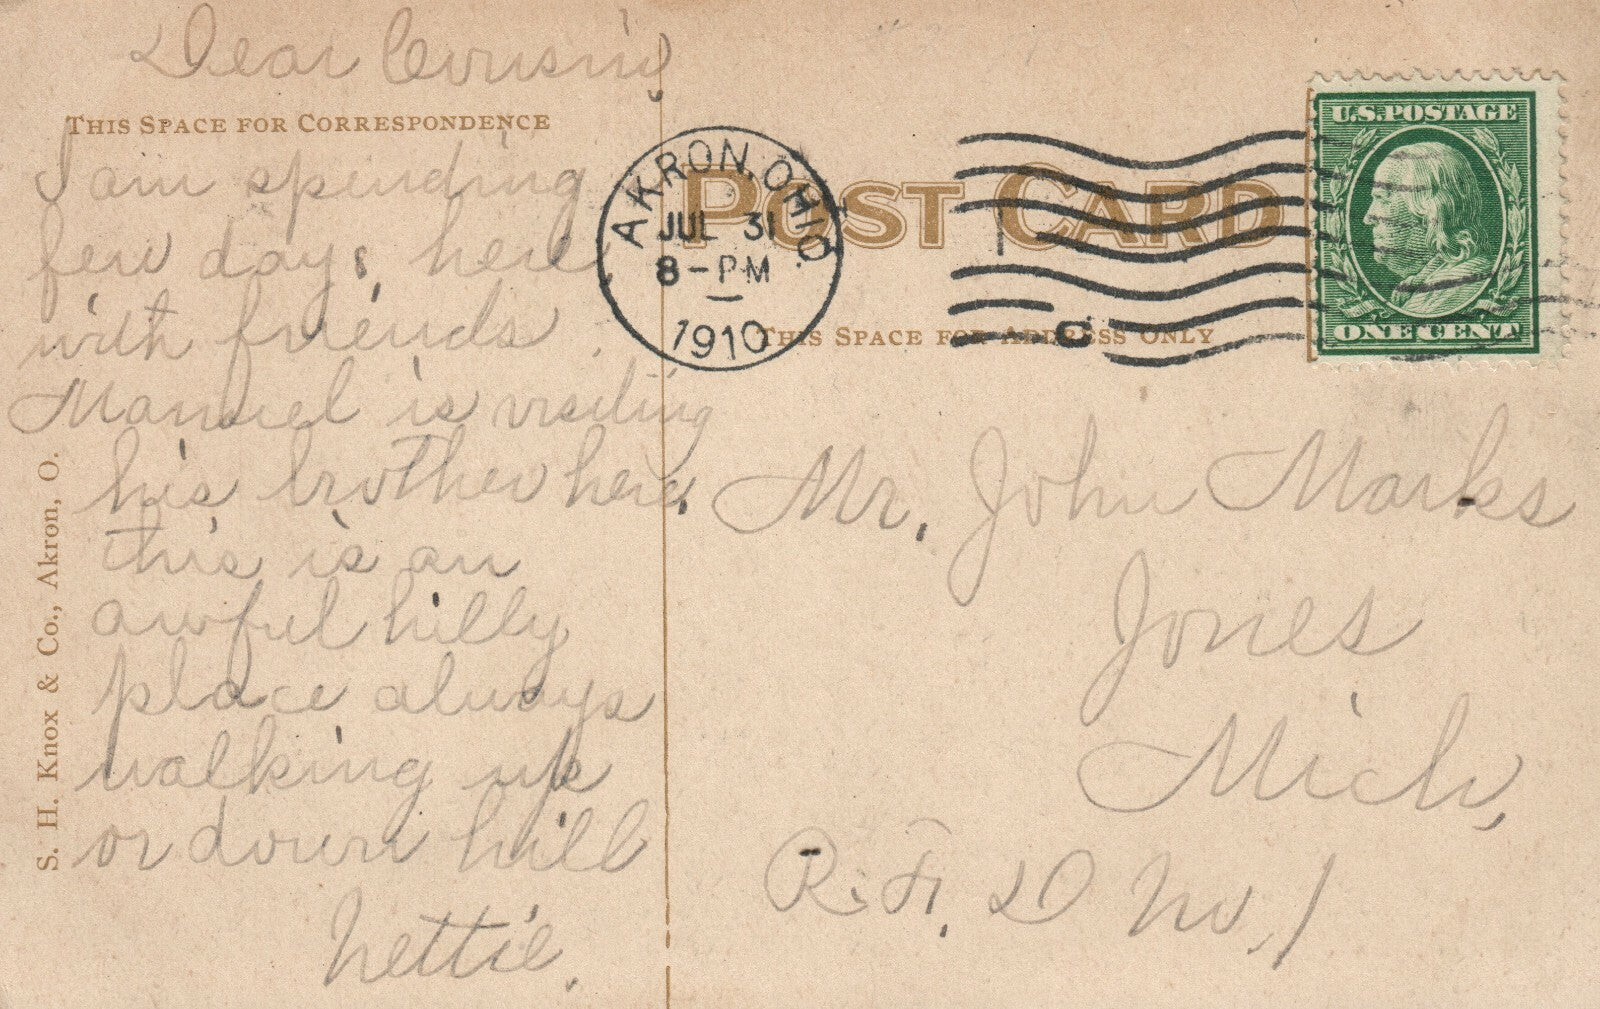 Dear Cousin,
THIS SPACE FOR CORRESPONDENCE
I am spending
few days here
with friends.
Manuel is visiting
his brother here,
this is an
awful hilly
place always
walking up
or down hill
Nettie.
S. H. Knox & Co., Akron, O.
AKRON, OHIO.
JUL 31
8-PM
1910
POST CARD
THIS SPACE FOR ADDRESS ONLY
U.S. POSTAGE
ONE CENT
Mr. John Marks
Jones
Mich,
R. F. D No. 1